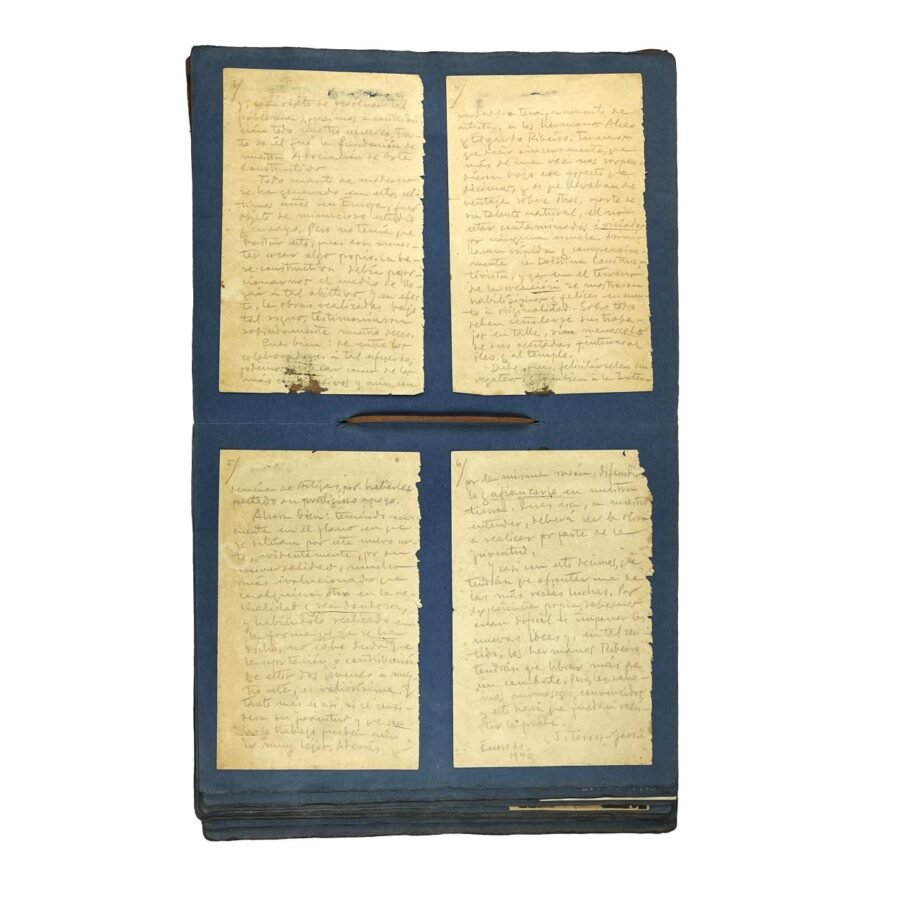 y, con objeto de resolver tal
problema, pusimos a contribu-
ción todo nuestro esfuerzo, fru-
to de él fué la fundación de
nuestra Asociación de Arte
Constructivo.
Todo cuanto de moderno
se ha generado en estos últi-
timos años en Europa, fué
objeto de minucioso estudio
y ensayo. Pero no tenía que
bastar esto, pues era menes-
ter crear algo propio. La ba-
se constructiva debía propor-
cionarnos el medio de lle-
gar a tal objetivo, y en efec-
to, las obras realizadas bajo
tal signo, testimoniaron
sobradamente nuestro deseo.
Pues bien: de entre los
colaboradores a tal esfuerzo,
podemos
más y aún, en
4/
verdadero temperamento de
artista, a los hermanos Alceo
y Edgardo Ribeiro. Tenemos
que decir sinceramente, que
más de una vez nos sorpren-
dieron bajo ese aspecto que
decimos, y es que llevaban de
ventaja sobre otros, aparte de
su talento natural, el no
estar contaminados o viciados
por ninguna escuela. Asimi-
laron rápida y comprensiva-
mente la Doctrina Construc-
tivista, y ya en el terreno
de la creación se mostraron
habilísimos y felices en cuan-
to a originalidad. Sobre todo
deben señalarse sus traba-
jos en talla, sin menoscabo
de sus acertadas pinturas al
óleo y al temple.
Debe, pues, felicitárseles
y también a la Inten-
5/
dencia de Artigas, por haberles
prestado su prodigioso apoyo.
Ahora bien: teniendo en
cuenta en el plano en que
se sitúan por este nuevo ar-
te, evidentemente, por su
universalidad, mucho
más evolucionado que
cualquiera otro en la ac-
tualidad y sea donde sea,
y habiéndolo realizado en
la forma que ya se ha
dicho, no cabe duda que
la aportación o contribución
de estos dos jóvenes a nues-
tro arte, es valiosísima. Y
tanto más si se consi-
dera su juventud y que
trabajo pueden aún
ir muy lejos. Además,
6/
por la misma razón, difundir-
lo y afianzarlo en nuestra
tierra. Pues esa, a nuestro
entender, deberá ser la obra
a realizar por parte de la
juventud.
Y casi con esto decimos, que
tendrán que afrontar una de
las más recias luchas. Por
experiencia propia, sabemos
cuan difícil es imponer las
nuevas ideas y, en tal sen-
tido, los hermanos Ribeiro
tendrán que librar más de
un combate. Pero, les sabe-
mos animosos, convencidos
y esto hará que puedan resis-
tir la prueba.
J. Torres-García
Enero
1940